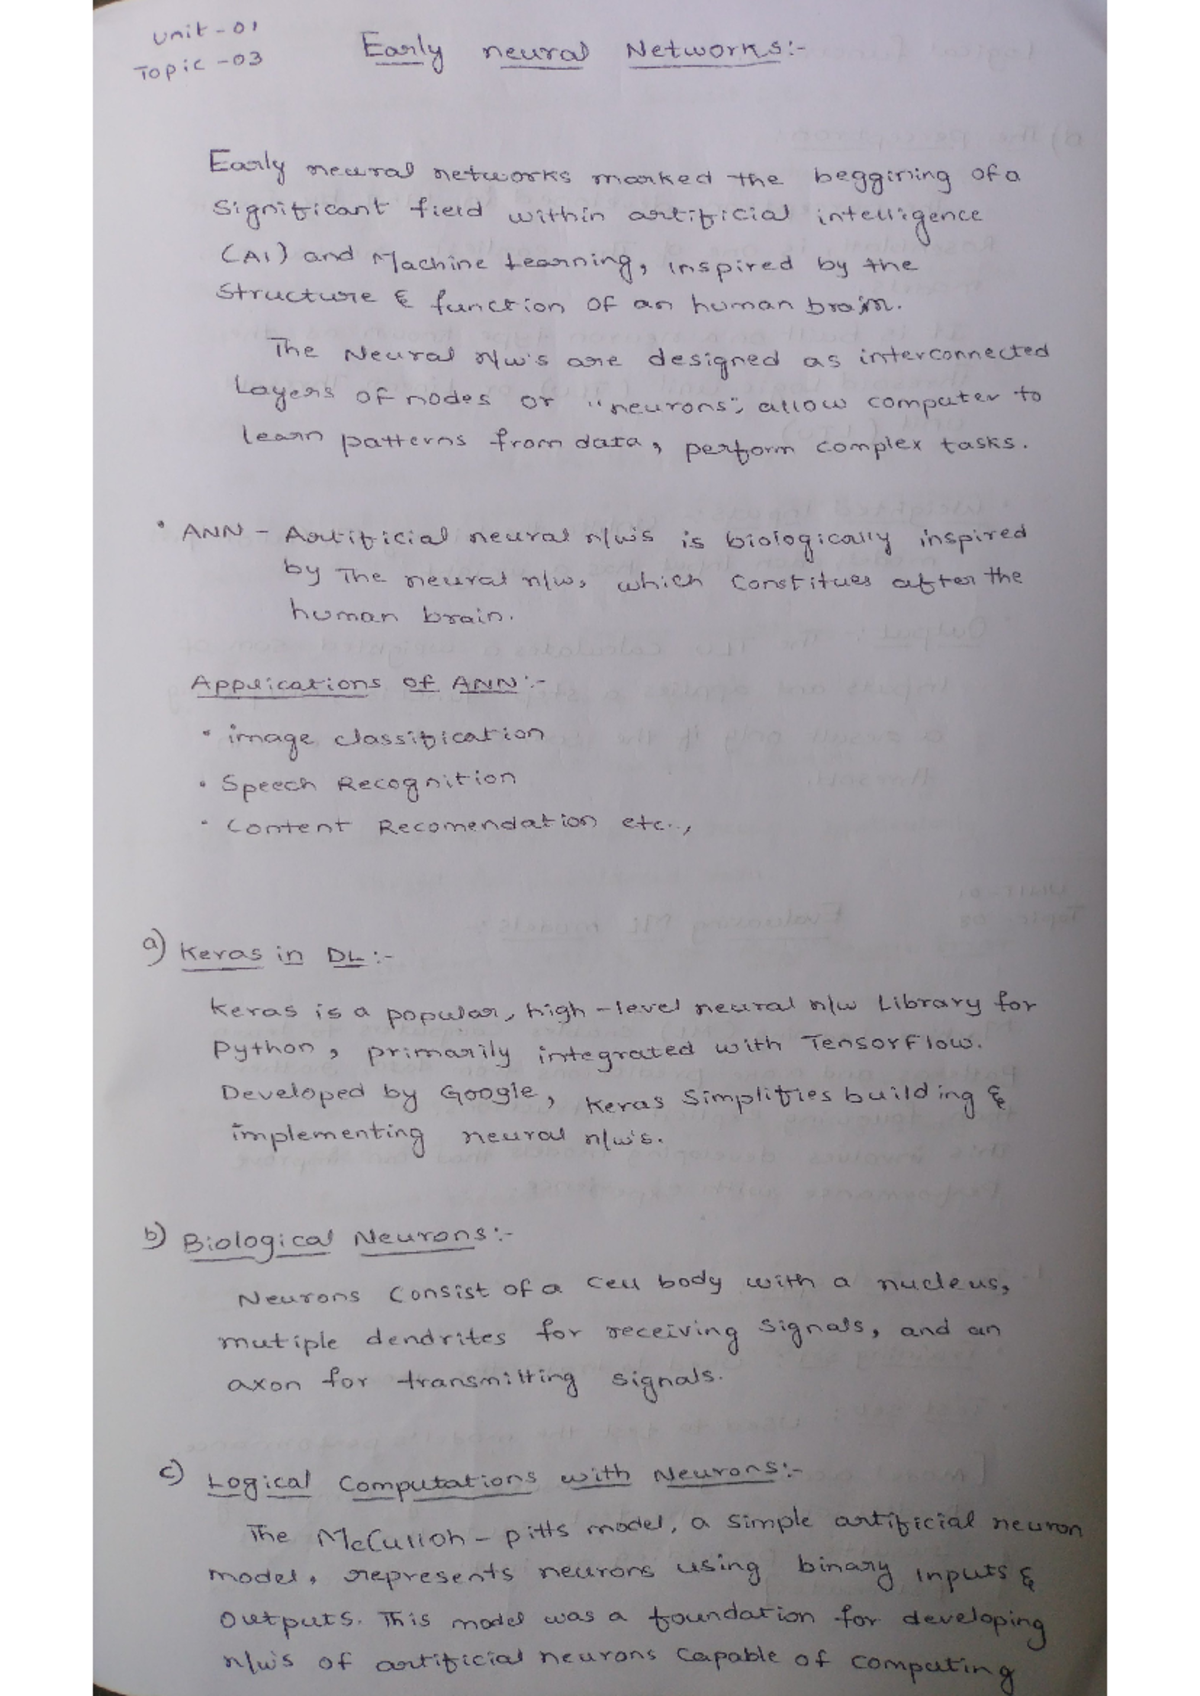 Unit-01
Topic-03
Early neural Networks:-
Early neural networks marked the beggining of a
Significant field within artificial intelligence
(AI) and Machine Learning, inspired by the
Structure & function of an human brain.
The Neural n/w's are designed as interconnected
Layers of nodes or "neurons", allow computer to
learn patterns from data, perform complex tasks.
• ANN - Artificial neural n/w's is biologically inspired
by The neural n/w, which Constitues after the
human brain.
Applications of ANN:-
• image classification
• Speech Recognition
• Content Recomendation etc..,
a) Keras in DL:-
Keras is a popular, high-level neural n/w Library for
Python, primarily integrated with TensorFlow.
Developed by Google, Keras Simplifies building &
implementing neural n/w's.
b) Biological Neurons:-
Neurons Consist of a Cell body with a nucleus,
mutiple dendrites for receiving Signals, and an
axon for transmitting signals.
c) Logical Computations with Neurons:-
The McCulloh-pitts model, a simple artificial neuron
model, represents neurons using binary inputs &
Outputs. This model was a foundation for developing
n/w's of artificial neurons Capable of computing